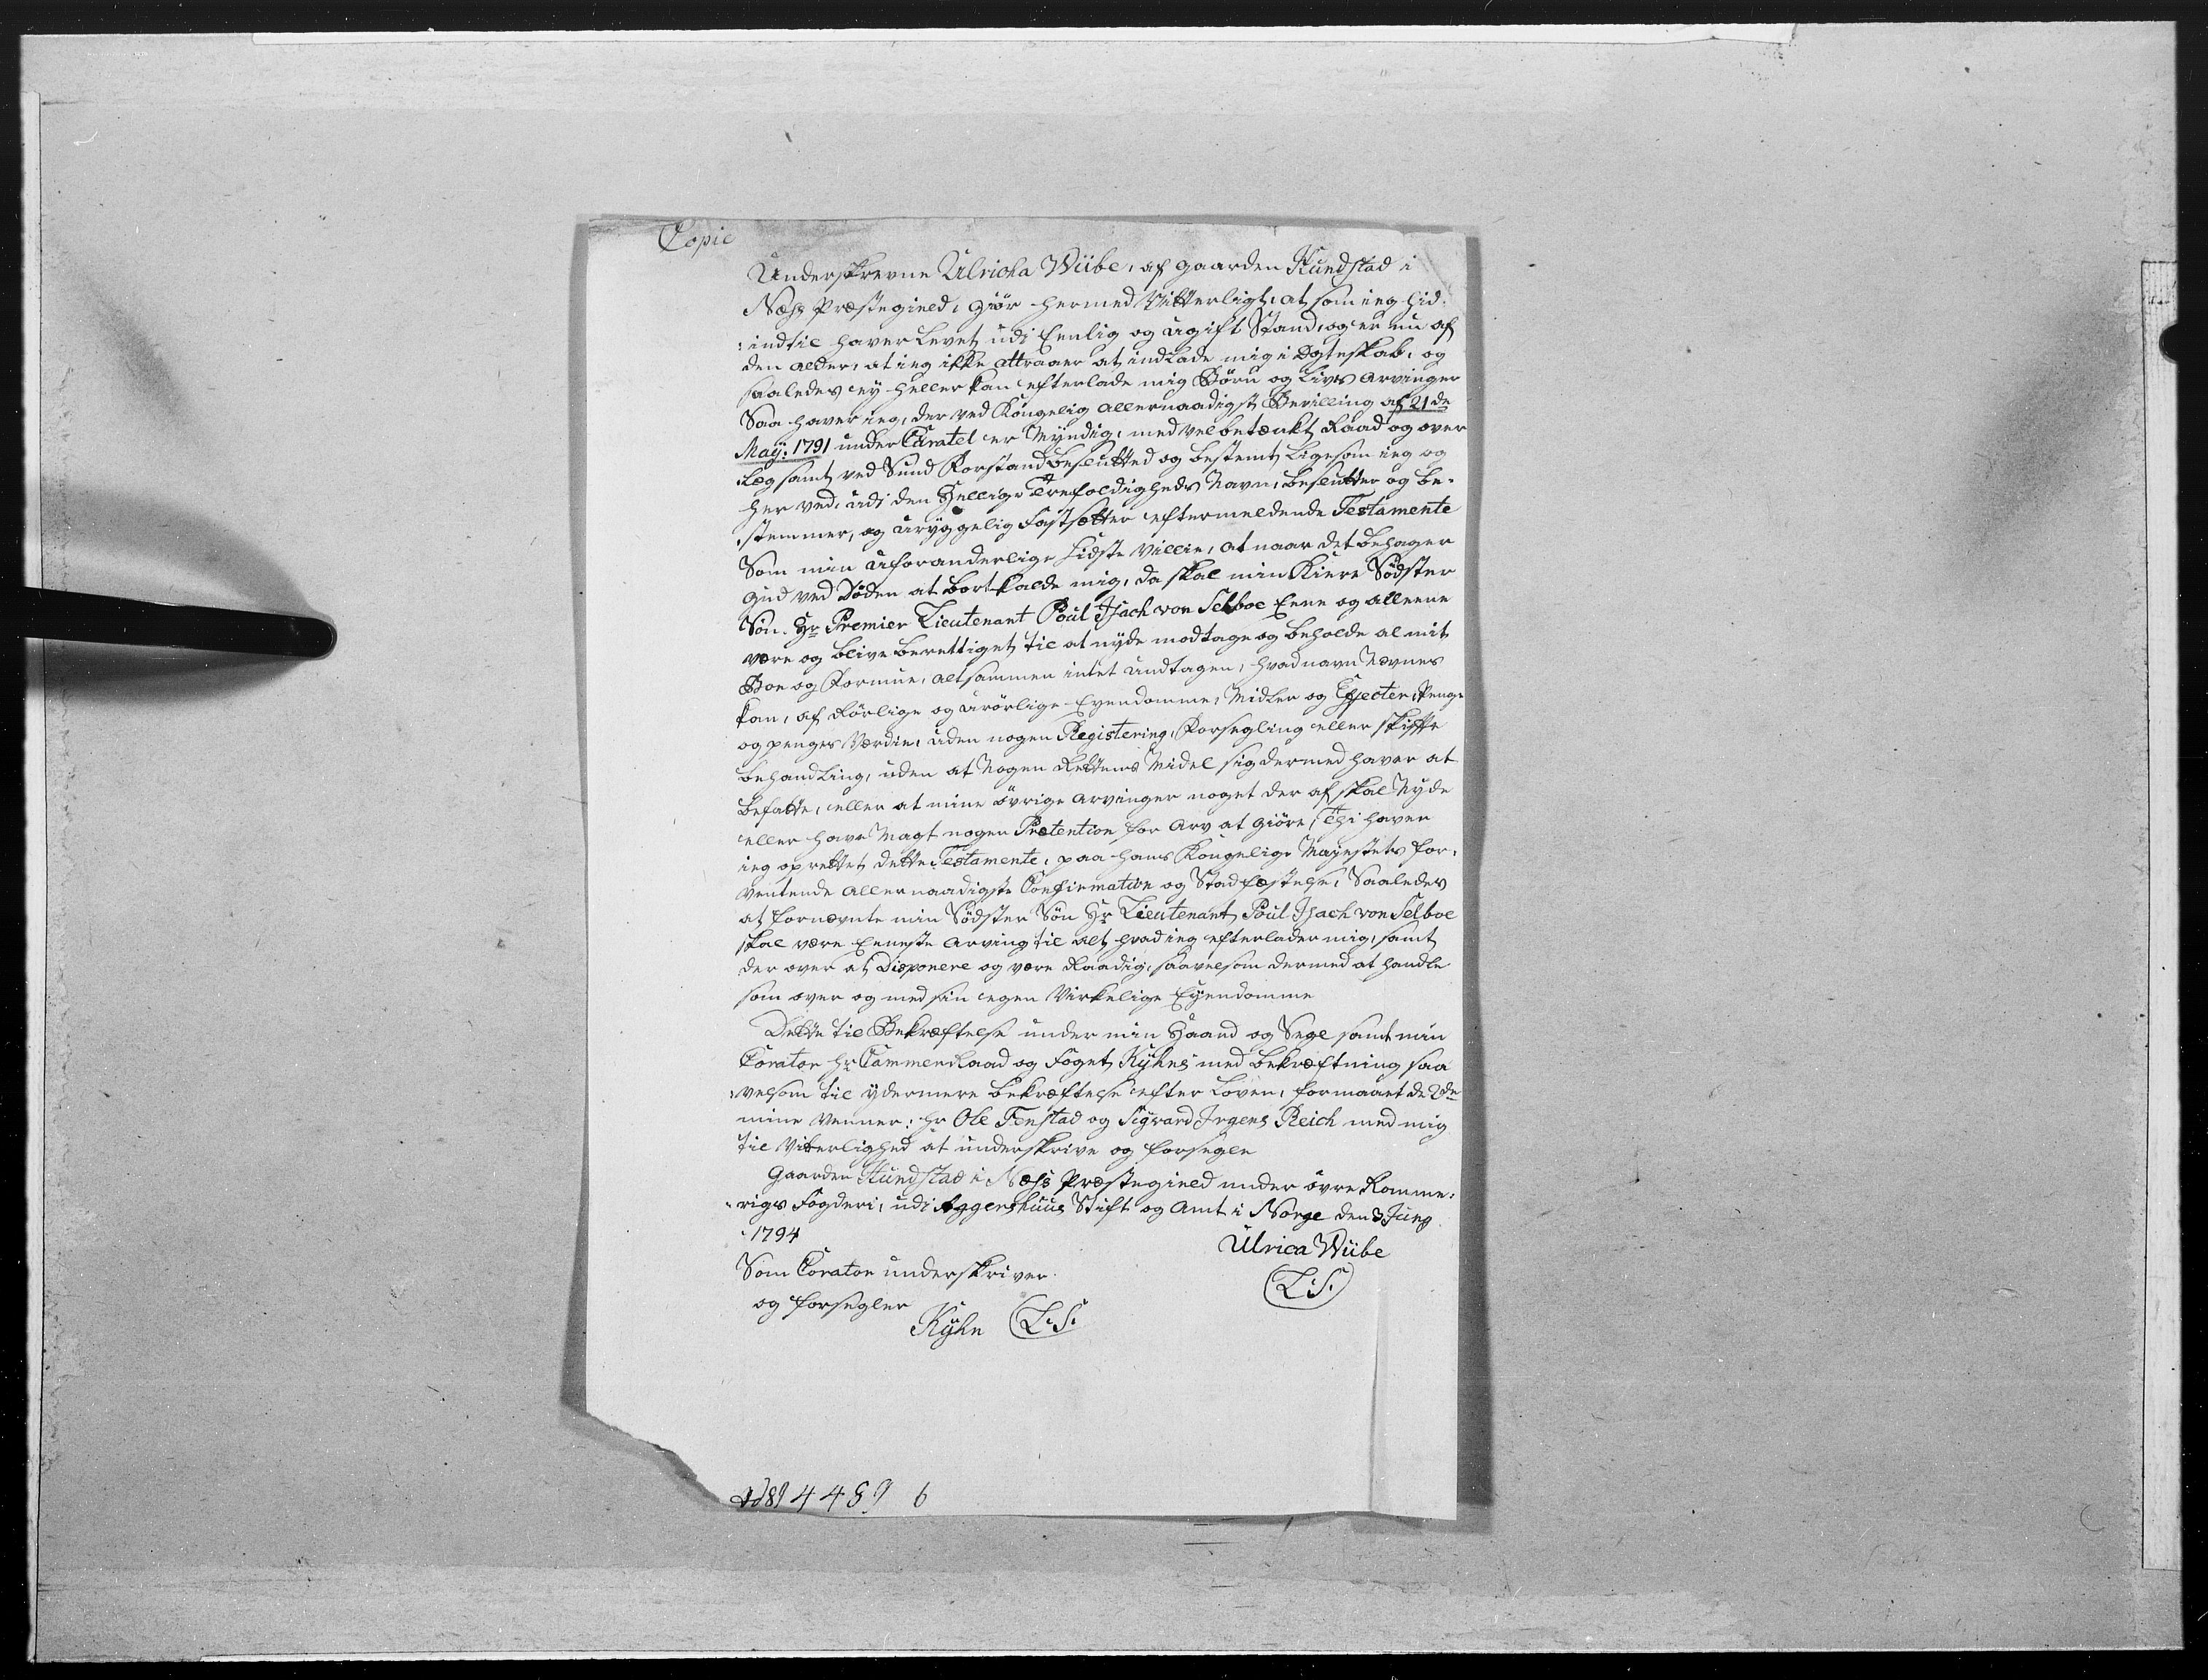 Copie
Underskrevne Ulricha Wübe, af gaarden Hundstad i
Næss Præstegield, giör hermed Vitterligt, at som ieg hid-
indtil haver Levet udi Eenlig og ugift Stand, og er nu af
den alder, at ieg ikke attraaer at indlade mig i Ægteskab, og
saaledes ey heller kan efterlade mig Börn og Livs Arvinger
Saa haver ieg, der ved Kongelig allernaadigst Bevilling af 21de
Maÿ. 1791 under Curatel er Myndig, med velbetænkt Raad og over
læg samt ved Sund Forstand besluttet og bestemt, ligesom ieg og
her ved, udi den Hellige Trefoldigheds Navn, beslutter og be-
stemmer, og uryggelig Fastsætter eftermeldende Testamente
Som min uforanderlige Sidste Villie, at naar det behager
Gud ved Döden at bortkalde mig, da skal min Kiere Södster
Sön. Hr Premier Lieutenant Poul Isach von Selboe Eene og alleene
være og blive berettiget til at nyde modtage og beholde al mit
Boe og Formue, altsammen intet undtagen, hvad navn Nævnes
kan, af Rörlige og urörlige Eyendomme, Midler og Effecter, Penge
og penges Værdie, uden nogen Registering, Forsegling eller skifte
behandling, uden at Nogen Rettens Midel sig dermed haver at
befatte, eller at mine övrige Arvinger noget der af skal Nyde
eller have Magt nogen Prætention for Arv at giöre, Thi haver
ieg oprettet dette Testamente, paa hans Kongelige Mayestets for-
ventende allernaadigste Confirmation og Stadfæstelse, Saaledes
at fornævnte min Södster Sön Hr Lieutenant Poul Isach von Selboe
skal være Eeneste Arving til alt hvad ieg efterlader mig, samt
der over at Disponere og være Raadig, saavelsom dermed at handle
som over og med sin egen Virkelige Eyendomme
Dette til Bekræftelse under min Haand og Segl samt min
Corator hr CammerRaad og Foget Kÿhns med bekræftning saa
velsom til ydermere bekræftelse efter Loven, formaaet de 2de
mine Venner: hr Ole Fenstad og Sigvard Irgens Reich med mig
til Vitterlighed at underskrive og forsegle
Gaarden Hundstad i Næss Præstegield under övre Romme-
rigs Fogderi, udi Aggershuus Stift og Amt i Norge den 3 Junÿ
1794
Ulrica Wübe
Som Corator underskriver
(L.S.)
og forsegler
Kÿhn (L.S.
4489 6